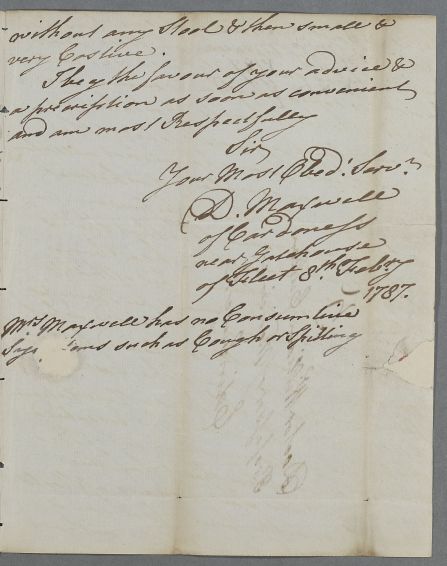 without any Stool & then small &
very Costive.
I beg the favour of your advice &
a prescription as soon as convenient
and am most Respectfully
Sir
Your Most Obed.t Serv.t
D. Maxwell
of Cardoness
near Gatehouse
of Fleet 8th Feb.ry
1787.
Mrs Maxwell has no Consumtive
such as Cough or Spitting